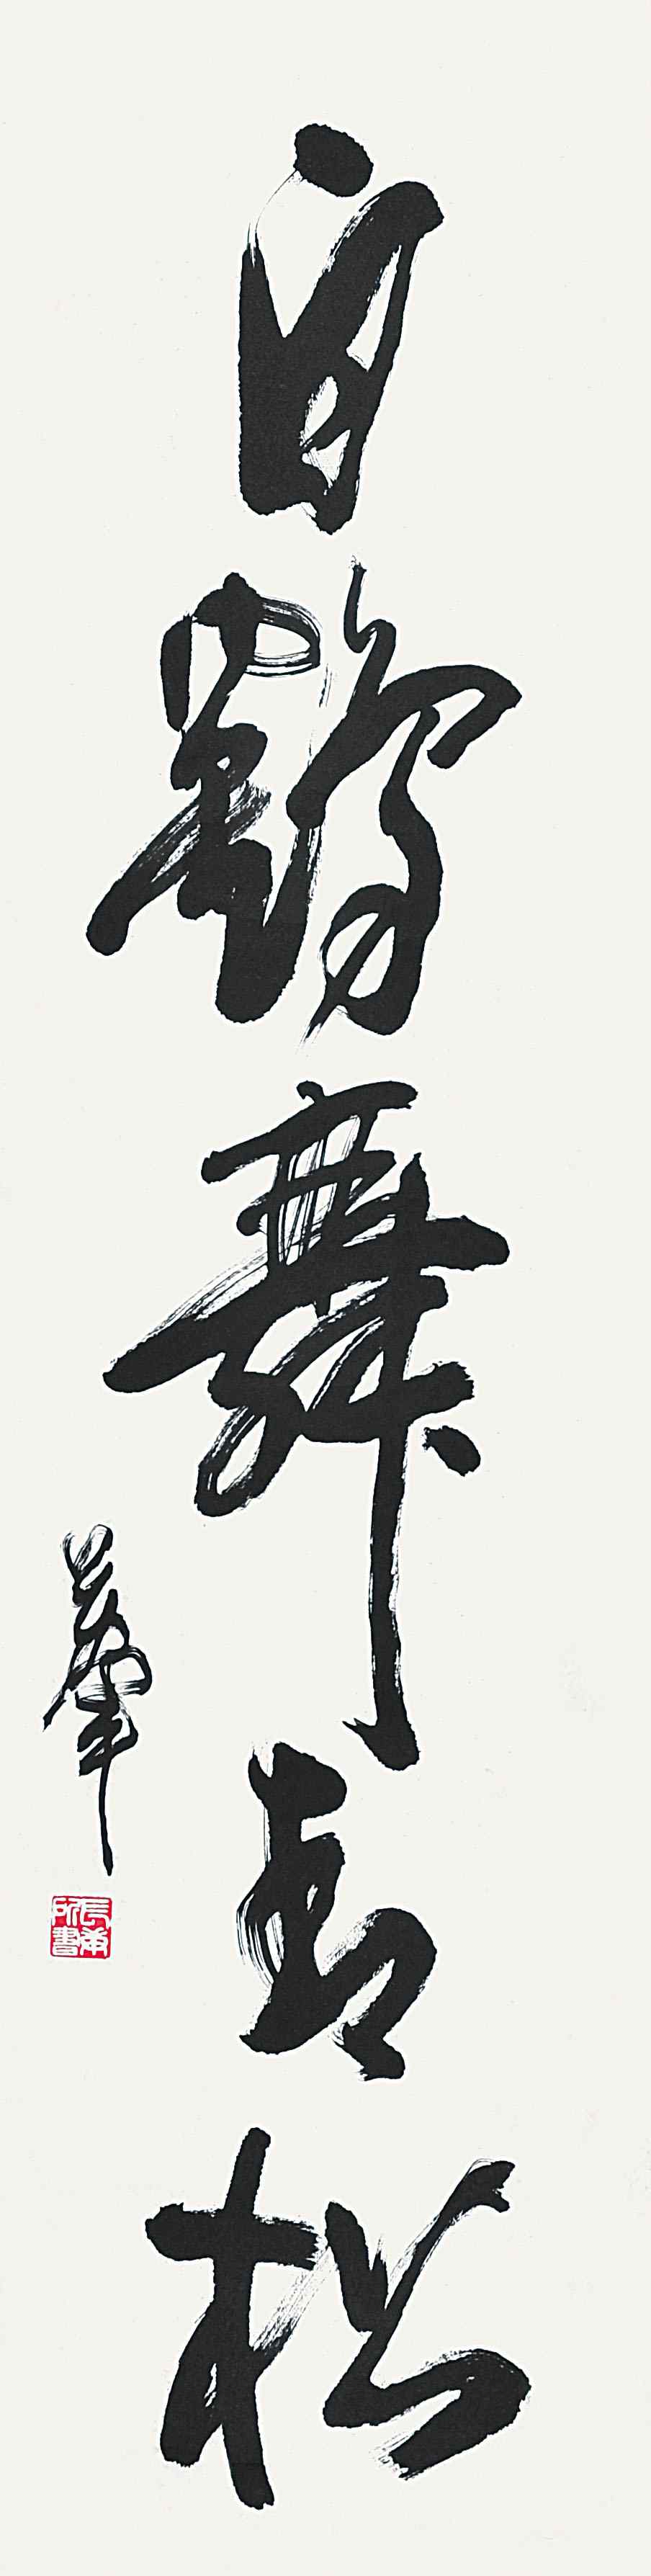 白鶴舞青松
華